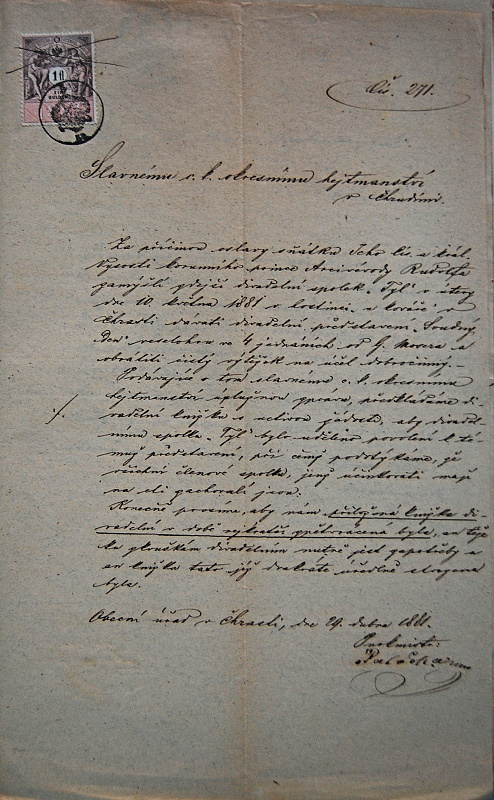 1 fl
Čís. 271.
Slavnému c. k. okresnímu hejtmanství
v Chrudimi.
Za příčinou oslavy sňatku Jeho cís. a král.
Výsosti korunního prince Arcivévody Rudolfa
zamýšlí zdejší divadelní spolek „Tyl" v úterý
dne 10. května 1881 v hostinci u koráče v
Chrasti dávati divadelní představení „Soudný
Den" veselohra ve 4 jednáních od G. Mosera a
obrátiti čistý výtěžek na účel dobročinný.–
Podávajíc o tom slavnému c. k. okresnímu
hejtmanství uctivou zprávu, předkládáme di-
vadelní knížku a uctivou žádost, aby divadel-
nímu spolku „Tyl" bylo uděleno povolení k to-
muž představení, při čemž podotýkáme, že
všichni členové spolku, jenž účinkovati mají
na cti zachovalí jsou.
Konečně prosíme, aby nám přiložená knížka di-
vadelní v době nejkratší zpět vrácená byla, an též
ke zkouškám divadelním nutně jest zapotřebí a
an knížka tato již dvakráte úředně
byla.
Obecní úřad v Chrasti, dne 29. dubna 1881.
Purkmistr: